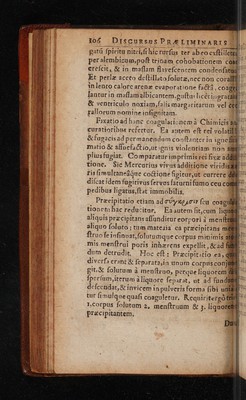 106 DISCURSUS PRÆLIMINARIS
gatū spiritu nitri, si hic rursus ter abro
per alembicum, post trinam cohobationem
crescit, & in massam flavescentem condensatur
Et perlæ aceto destillato solutæ, nec non corall
in lento calore arenæ evaporatione factâ, coagu
lantur in massam albicantem, gustu
& ventriculo noxiam, salis margaritarum vel co
rallorum nomine insignitam.
Fixatio ad hanc coagulationem à Chimicis
curatioribus refertur. Ea autem est rei volatil
& fugacis ad permanendum constanter in igne
matio & assuefactio, ut ignis violentiam non am
plius fugiat. Comparatur imprimis rei fixæ
tione. Sic Mercurius vivus additione viridis
ris simultaneâque coctione figitur, ut currere de
discat idem fugitivus servus saturni fumo ceu com
pedibus ligatus, stat immobilis.
Præcipitatio etiam ad σύγκρισιν seu coagula
tionem hæc reducitur. Ea autem fit, cum liquor
aliquis præcipitans affunditur corpori à menstruo
aliquo soluto; tum materia ea præcipitans men
struo se insinuat, solutumque corpus minimis
mis menstrui poris inhærens expellit, & ad fun
dum detrudit. Hoc est: Præcipitatio ea, quæ
diversa erant & separata, in unum corpus conjun
git. & solutum à menstruo, perque liquorem di
spersum, iterum à liquore separat, ut ad fundum
descendat, & invicem in pulveris forma sibi unia
tur simulque quasi coaguletur. Requirit ergo
1. corpus solutum 2. menstruum & 3. liquorem
præcipitantem.